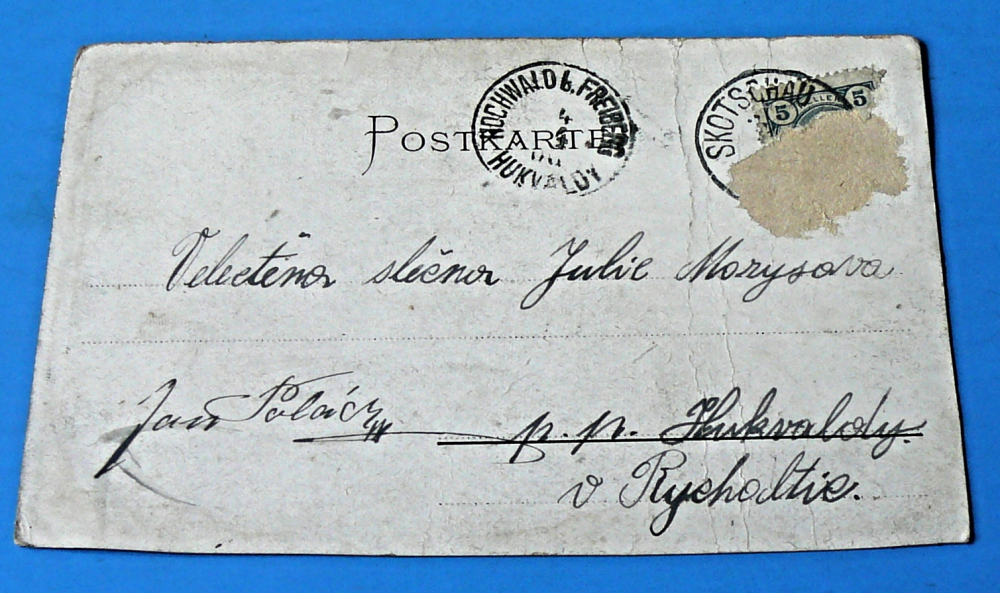 POSTKARTE
HOCHWALD b. FREIBERG
4
HUKVALDY
SKOTSCHAU
5 5
Velectěna slečna Julie Morysova
Jan Polácz
p. p. Hukvaldy.
v Rychaltic.